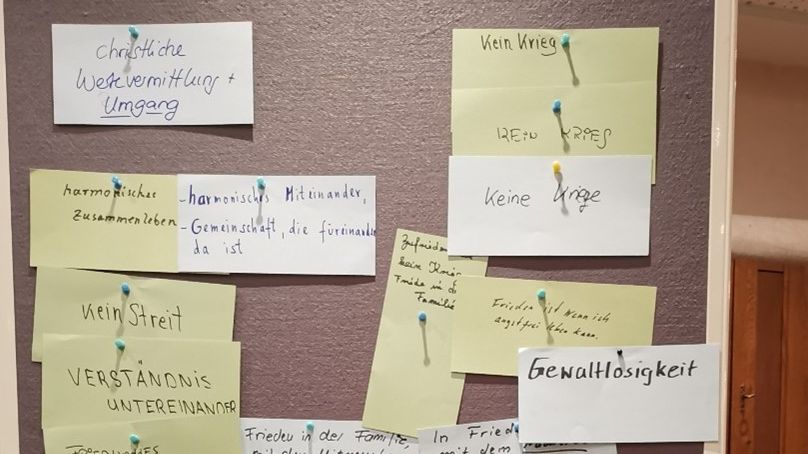 christliche
Wertevermittlung +
Umgang
harmonisches
Zusammenleben
- harmonisches Miteinander,
- Gemeinschaft, die füreinander
da ist
Kein Streit
VERSTÄNDNIS
UNTEREINANDER
Kein Krieg
KEIN KRIEG
Keine Kriege
kein
Familie
Frieden ist wenn ich
angstfrei leben kann.
Gewaltlosigkeit
Frieden in der Familie,
In
mit dem